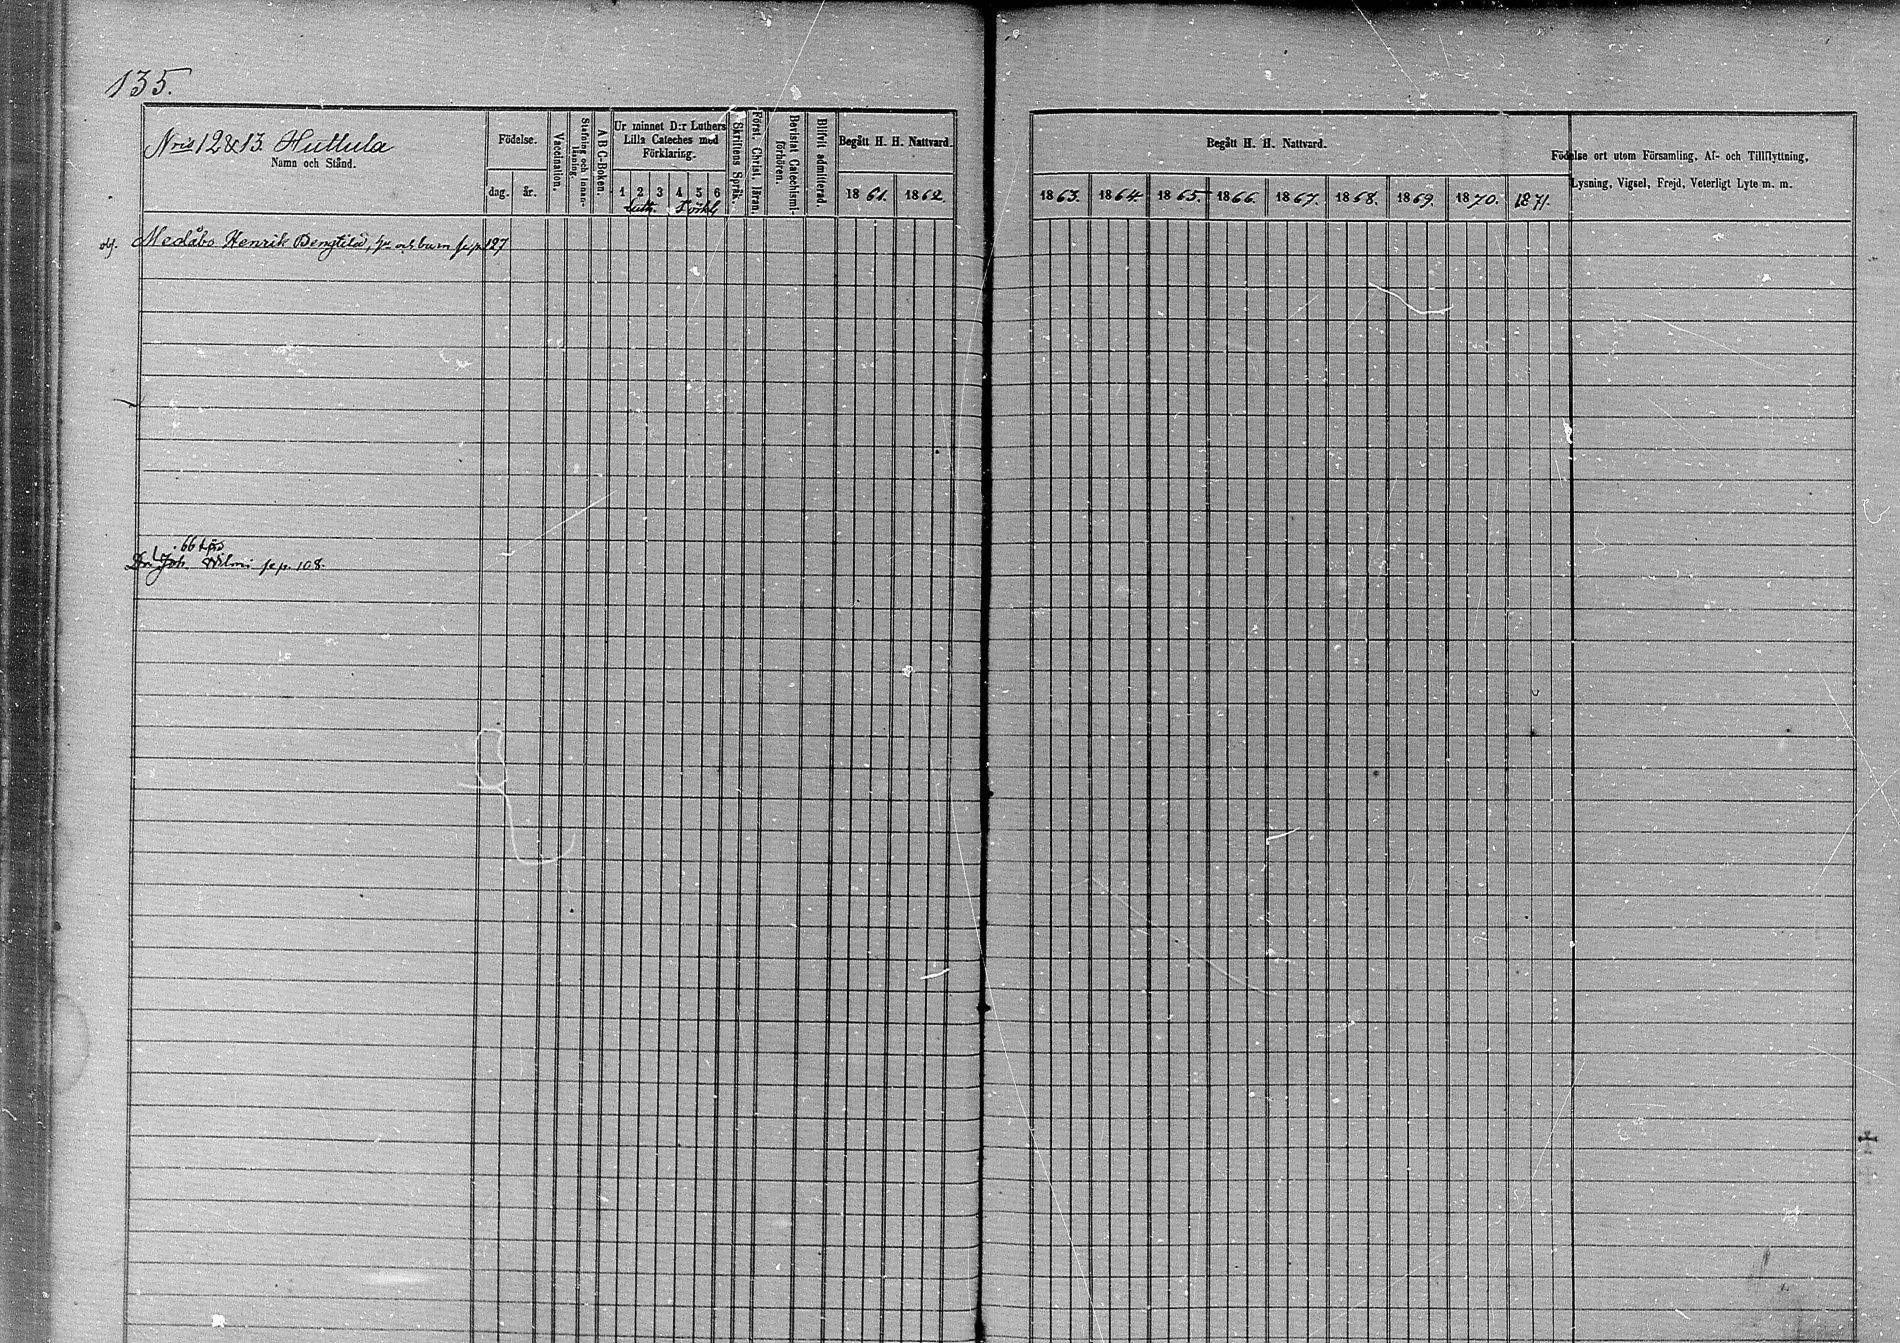 135.
Nris 12 & 13. Huttula
Namn och Stånd.
Födelse.
dag. år.
Vaccination.
Stafning och Innan-
läsning.
A B C-Boken.
Ur minnet D:r Luthers
Lilla Cateches med
Förklaring.
1 2 3 4 5 6
Luth. Förkl
Skriftens Språk.
Först. Christ. läran.
Bevistat Catechismi-
förhören.
Blifvit admitterad.
Begått H. H. Nattvard.
1861. 1862.
Begått H. H. Nattvard.
1863. 1864. 1865. 1866. 1867. 1868. 1869. 1870. 1871.
Födelse ort utom Församling, Af- och Tillflyttning,
Lysning, Vigsel, Frejd, Veterligt Lyte m. m.
Medåbo Henrik och barn se p 127
66
Joh. se p. 108.